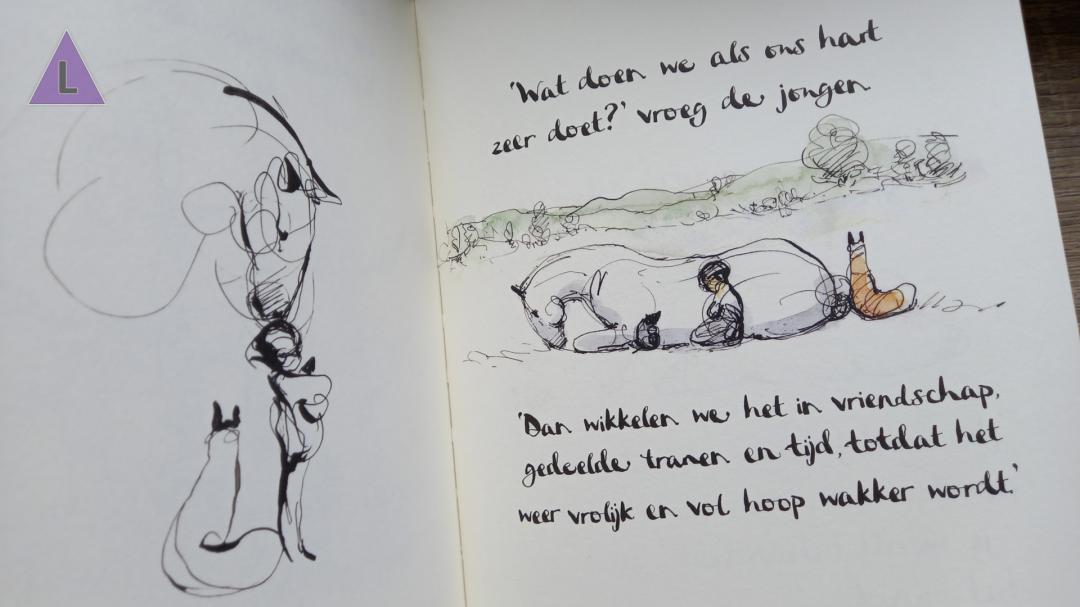 L
'Wat doen we als ons hart
zeer doet?' vroeg de jongen
'Dan wikkelen we het in vriendschap,
gedeelde tranen en tijd, totdat het
weer vrolijk en vol hoop wakker wordt.'